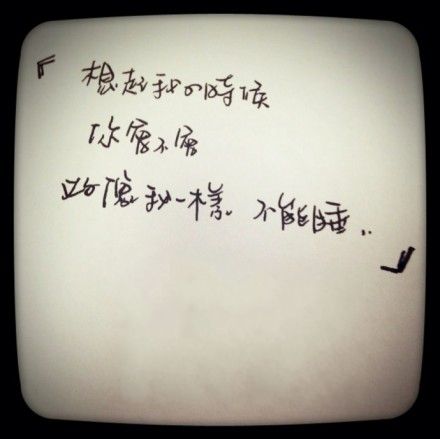 『想起我の時候
你會不會
好像我一樣 不能睡..』